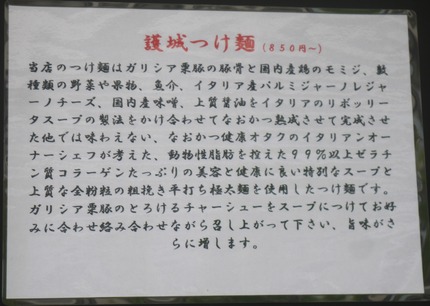 護城つけ麺(850円~)
当店のつけ麺はガリシア栗豚の豚骨と国内産鶏のモミジ、数
種類の野菜や果物、魚介、イタリア産パルミジャーノレジャ
ーノチーズ、国内産味噌、上質醤油をイタリアのリボッリー
タスープの製法をかけ合わせてなおかつ熟成させて完成させ
た他では味わえない、なおかつ健康オタクのイタリアンオー
ナーシェフが考えた、動物性脂肪を控えた99%以上ゼラチ
ン質コラーゲンたっぷりの美容と健康に良い特別なスープと
上質な全粉粒の粗挽き平打ち極太麺を使用したつけ麺です。
ガリシア栗豚のとろけるチャーシューをスープにつけてお好
みに合わせ絡み合わせながら召し上がって下さい、旨味がさ
らに増します。